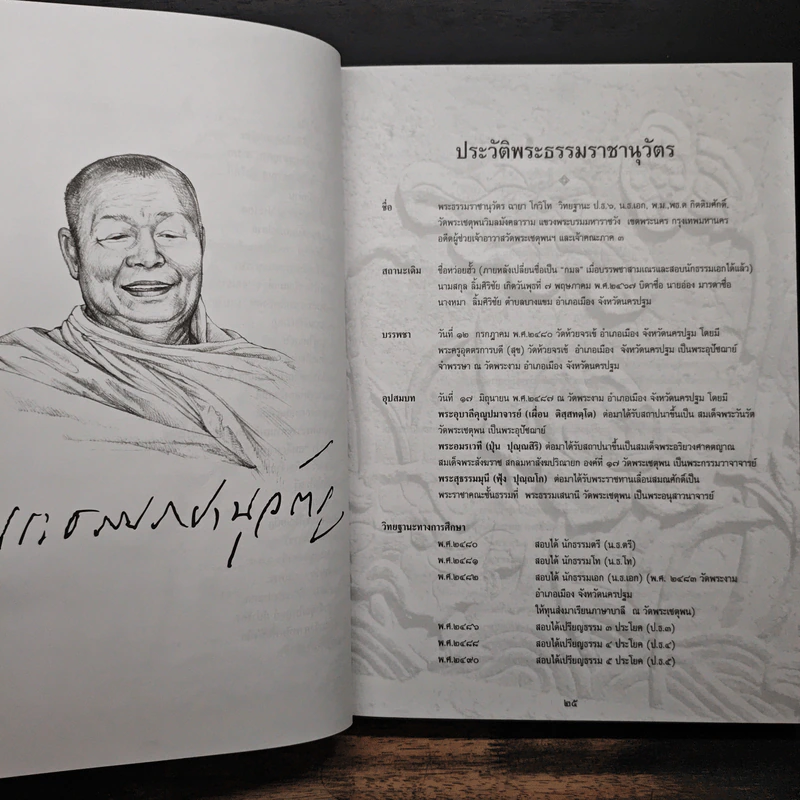 พระธรรมราชานุวัตร
ประวัติพระธรรมราชานุวัตร
ชื่อ พระธรรมราชานุวัตร ฉายา โกวิโท วิทยฐานะ ป.ธ.๖, น.ธ.เอก, พ.ม.,พธ.ด กิตติมศักดิ์,
วัดพระเชตุพนวิมลมังคลาราม แขวงพระบรมมหาราชวัง เขตพระนคร กรุงเทพมหานคร
อดีตผู้ช่วยเจ้าอาวาสวัดพระเชตุพนฯ และเจ้าคณะภาค ๓
สถานะเดิม ชื่อหว่อยฮั้ว (ภายหลังเปลี่ยนชื่อเป็น “กมล” เมื่อบรรพชาสามเณรและสอบนักธรรมเอกได้แล้ว)
นามสกุล ลิ้มศิริชัย เกิดวันพุธที่ ๗ พฤษภาคม พ.ศ.๒๔๖๗ บิดาชื่อ นายฮ่อง มารดาชื่อ
นางหมา ลิ้มศิริชัย ตำบลบางแขม อำเภอเมือง จังหวัดนครปฐม
บรรพชา วันที่ ๑๒ กรกฎาคม พ.ศ.๒๔๘๐ วัดห้วยจรเข้ อำเภอเมือง จังหวัดนครปฐม โดยมี
พระครูอุตตรการบดี (สุข) วัดห้วยจรเข้ อำเภอเมือง จังหวัดนครปฐม เป็นพระอุปัชฌาย์
จำพรรษา ณ วัดพระงาม อำเภอเมือง จังหวัดนครปฐม
อุปสมบท วันที่ ๑๗ มิถุนายน พ.ศ.๒๔๘๗ ณ วัดพระงาม อำเภอเมือง จังหวัดนครปฐม โดยมี
พระอุบาลีคุณูปมาจารย์ (เผื่อน ติสฺสทตฺโต) ต่อมาได้รับสถาปนาขึ้นเป็น สมเด็จพระวันรัต
วัดพระเชตุพน เป็นพระอุปัชฌาย์
พระอมรเวที (ปุ่น ปุณฺณสิริ) ต่อมาได้รับสถาปนาขึ้นเป็นสมเด็จพระอริยวงศาคตญาณ
สมเด็จพระสังฆราช สกลมหาสังฆปริณายก องค์ที่ ๑๗ วัดพระเชตุพน เป็นพระกรรมวาจาจารย์
พระสุธรรมมุนี (ฟุ้ง ปุญฺญโก) ต่อมาได้รับพระราชทานเลื่อนสมณศักดิ์เป็น
พระราชาคณะชั้นธรรมที่ พระธรรมเสนานี วัดพระเชตุพน เป็นพระอนุสาวนาจารย์
วิทยฐานะทางการศึกษา
พ.ศ.๒๔๘๐ สอบได้ นักธรรมตรี (น.ธ.ตรี)
พ.ศ.๒๔๘๑ สอบได้ นักธรรมโท (น.ธ.โท)
พ.ศ.๒๔๘๒ สอบได้ นักธรรมเอก (น.ธ.เอก) (พ.ศ. ๒๔๘๓ วัดพระงาม
อำเภอเมือง จังหวัดนครปฐม
ให้ทุนส่งมาเรียนภาษาบาลี ณ วัดพระเชตุพน)
พ.ศ.๒๔๘๖ สอบได้เปรียญธรรม ๓ ประโยค (ป.ธ.๓)
พ.ศ.๒๔๘๘ สอบได้เปรียญธรรม ๔ ประโยค (ป.ธ.๔)
พ.ศ.๒๔๙๐ สอบได้เปรียญธรรม ๕ ประโยค (ป.ธ.๕)
๒๕